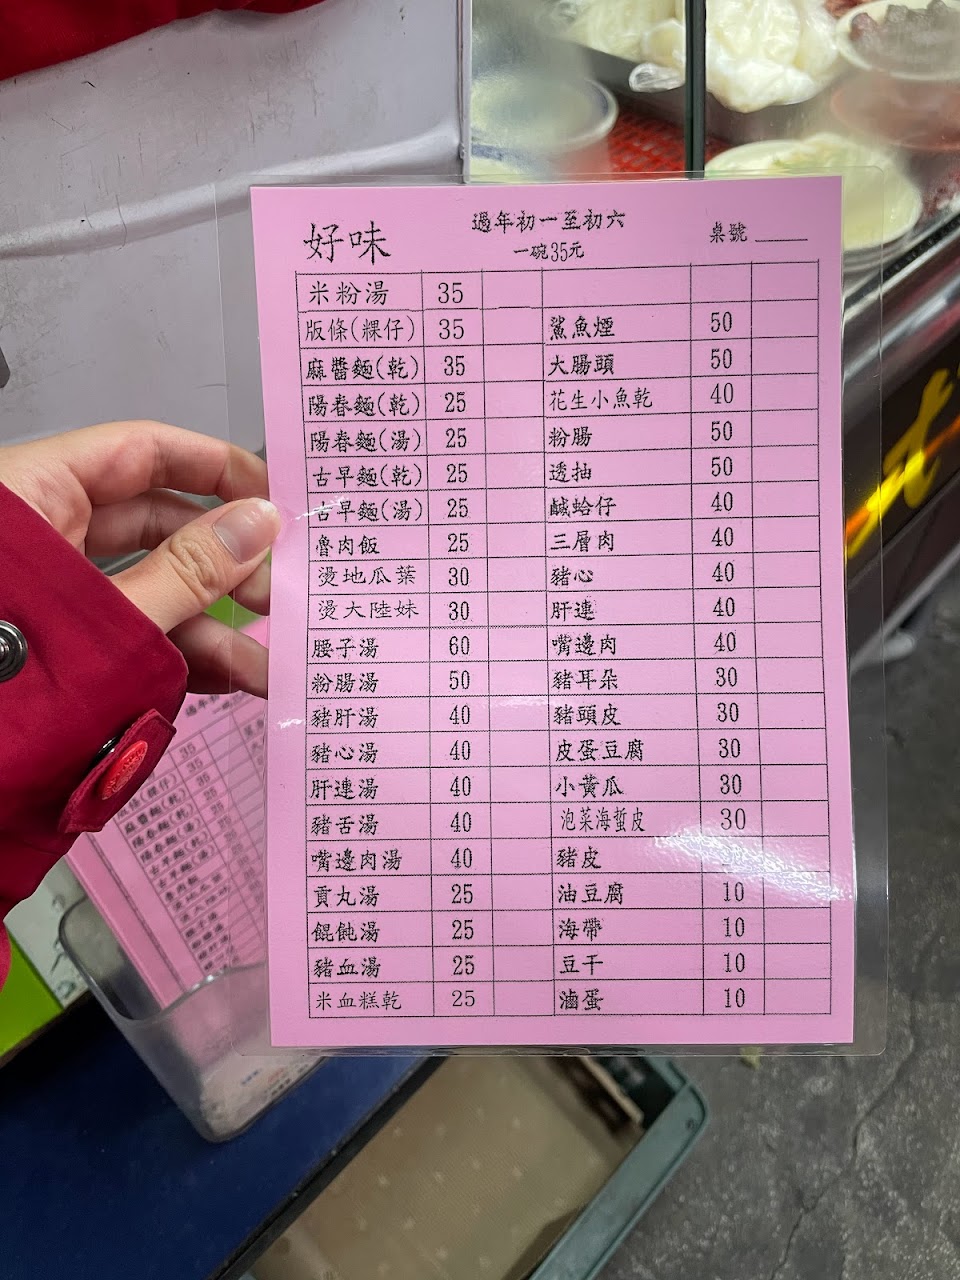 好味
過年初一至初六
一碗35元
桌號
米粉湯 35
版條(粿仔) 35 鯊魚煙 50
麻醬麵(乾) 35 大腸頭 50
陽春麵(乾) 25 花生小魚乾 40
陽春麵(湯) 25 粉腸 50
古早麵(乾) 25 透抽 50
古早麵(湯) 25 鹹蛤仔 40
魯肉飯 25 三層肉 40
燙地瓜葉 30 豬心 40
燙大陸妹 30 肝連 40
腰子湯 60 嘴邊肉 40
粉腸湯 50 豬耳朵 30
豬肝湯 40 豬頭皮 30
豬心湯 40 皮蛋豆腐 30
肝連湯 40 小黃瓜 30
豬舌湯 40 泡菜海蜇皮 30
嘴邊肉湯 40 豬皮
貢丸湯 25 油豆腐 10
餛飩湯 25 海帶 10
豬血湯 25 豆干 10
米血糕乾 25 滷蛋 10